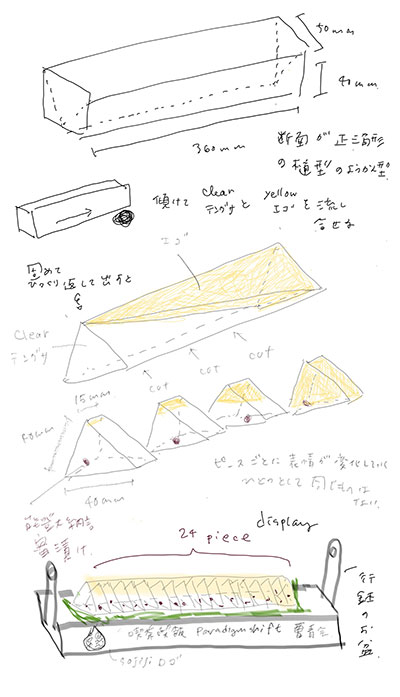 50mm
40mm
360mm
断面が正三角形
の樋型のようかん型
傾けて clear テングサと yellow エゴを流し
合せる
固めて
ひっくり返して出すと
エゴ
clear
テングサ
cut
cut
cut
15mm
40mm
ピースごとに表情が変化していく
ひとつとして同じものは
ない
蜜漬け
24 piece
display
paradigm shift
sojiji ロゴ